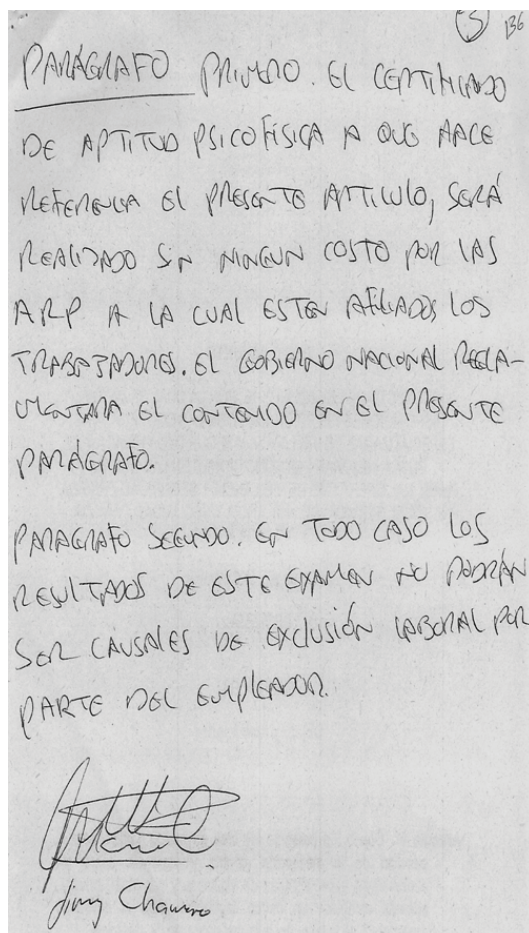 5 136
PARÁGRAFO PRIMERO. EL CERTIFICADO
DE APTITUD PSICOFÍSICA A QUE HACE
REFERENCIA EL PRESENTE ARTICULO, SERÁ
REALIZADO SIN NINGUN COSTO POR LAS
ARP A LA CUAL ESTEN AFILIADOS LOS
TRABAJADORES. EL GOBIERNO NACIONAL REGLA-
MENTARA EL CONTENIDO EN EL PRESENTE
PARÁGRAFO.
PARAGRAFO SEGUNDO. EN TODO CASO LOS
RESULTADOS DE ESTE EXAMEN NO PODRÁN
SER CAUSALES DE EXCLUSIÓN LABORAL POR
PARTE DEL EMPLEADOR.
Jimy Chamorro